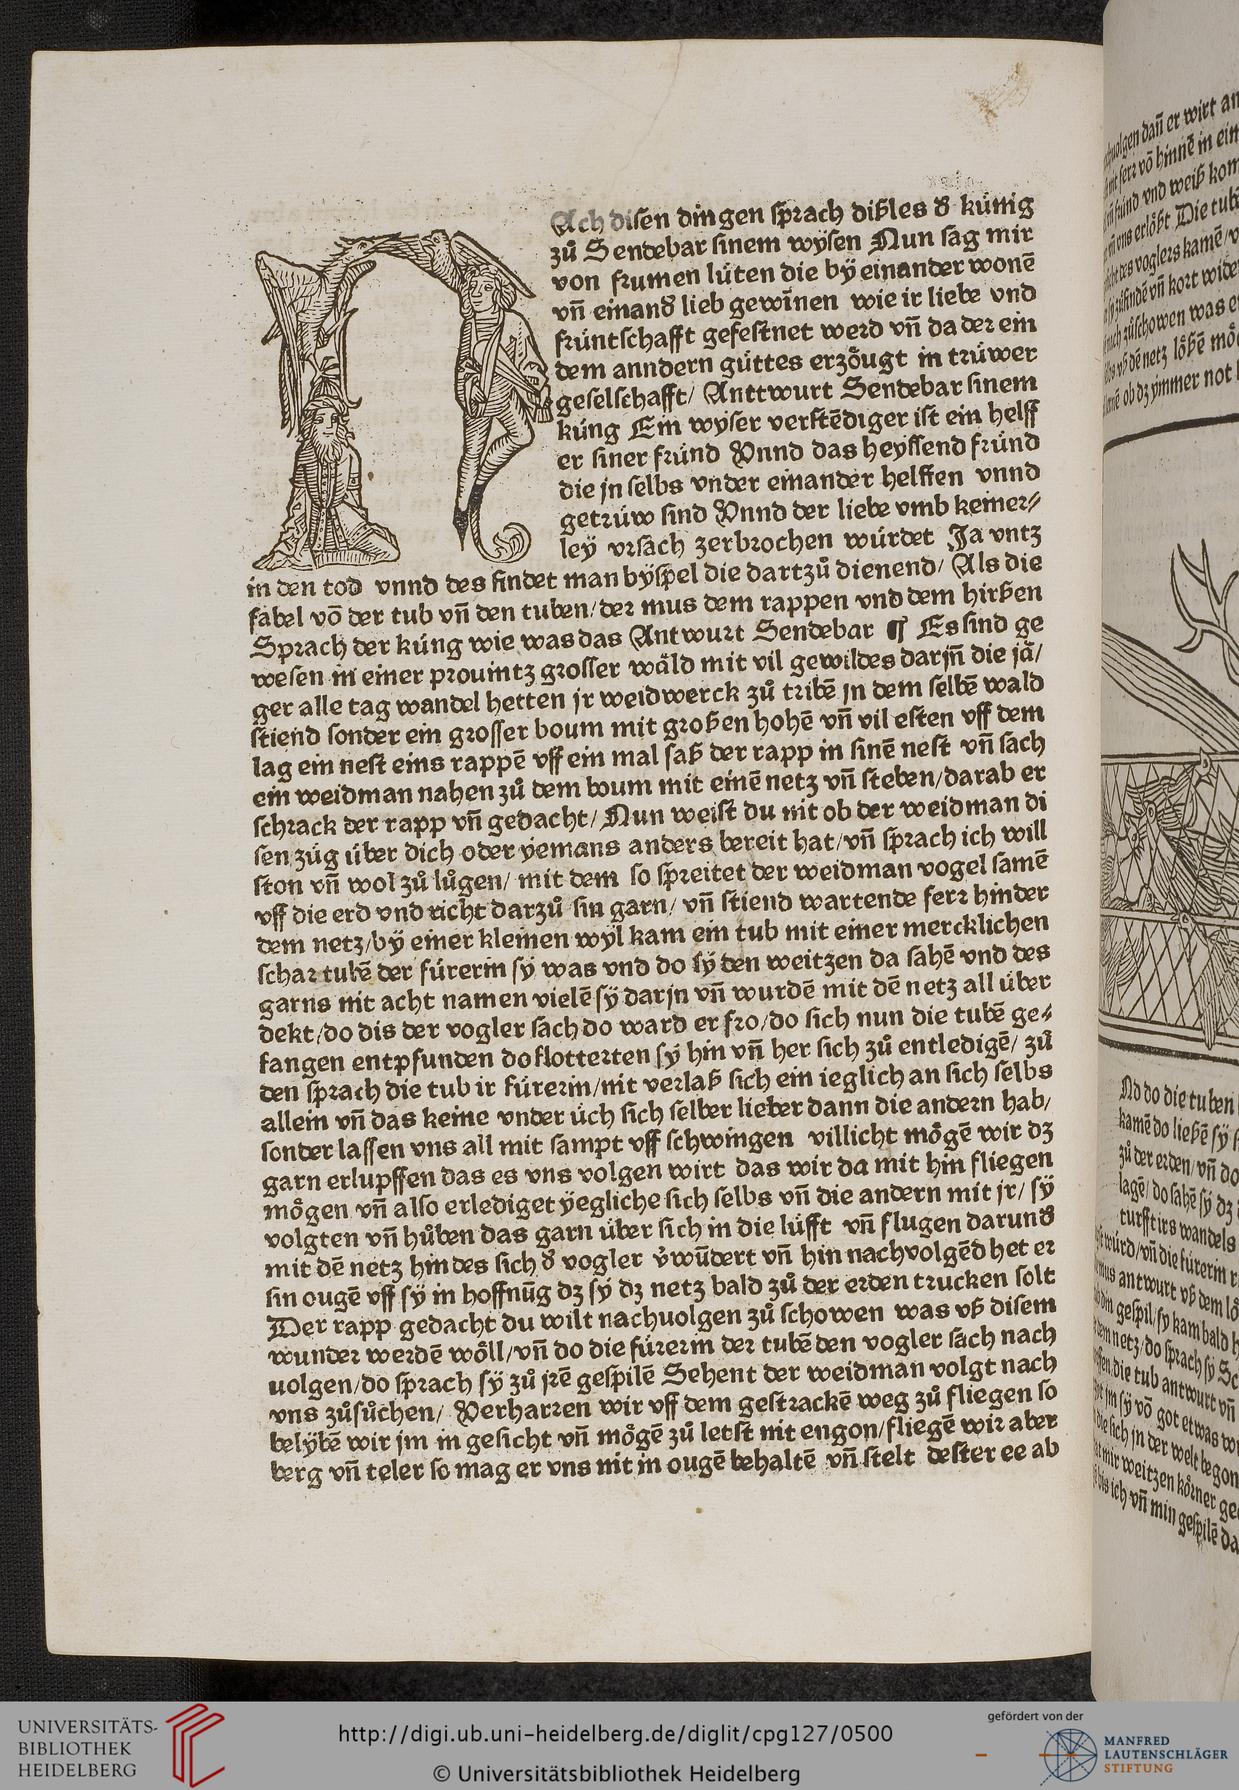 NAch disen dingen sprach dißles d̕ künig
zů Sendebar sinem wysen Nun sag mir
von frumen lüten die bÿ einander wonē
vn̄ einand̕ lieb gewīnen wie ir liebe vnd
früntschafft gefestnet werd vn̄ da der ein
dem anndern güttes erzȯugt in trüwer
geselschafft/ Anttwurt Sendebar sinem
küng Ein wyser verstēdiger ist ein helff
er siner fründ Vnnd das heyssend fründ
die jn selbs vnder einander helffen vnnd
getrüw sind Vnnd der liebe vmb keiner⸗
leÿ vrsach zerbrochen würdet Ja vntz
in den tod vnnd des findet man bÿspel die dartzů dienend/ Als die
fabel vō der tub vn̄ den tuben/der mus dem rappen vnd dem hirßen
Sprach der küng wie was das Antwurt Sendebar ¶ Es sind ge
wesen in einer prouintz grosser wåld mit vil gewildes darjn̄ die jå/
ger alle tag wandel hetten jr weidwerck zů tribē jn dem selbē wald
stiend sonder ein grosser boum mit großen hohē vn̄ vil esten vff dem
lag ein nest eins rappē vff ein mal saß der rapp in sinē nest vn̄ sach
ein weidman nahen zů dem boum mit einē netz vn̄ steben/darab er
schrack der rapp vn̄ gedacht/ Nun weist du nit ob der weidman di
sen züg über dich oder yemans anders bereit hat/vn̄ sprach ich will
ston vn̄ wol zů lůgen/ mit dem so spreitet der weidman vogel samē
vff die erd vnd richt darzů sin garn/ vn̄ stiend wartende ferr hinder
dem netz/bÿ einer kleinen wyl kam ein tub mit einer mercklichen
schar tubē der fürerin sÿ was vnd do sÿ den weitzen da sahē vnd des
garns nit acht namen vielē sÿ darjn vn̄ wurdē mit dē netz all über
dekt/do dis der vogler sach do ward er fro/do sich nun die tubē ge⸗
fangen entpfunden do flotterten sÿ hin vn̄ her sich zů entledigē/ zů
den sprach die tub ir fürerin/nit verlaß sich ein ieglich an sich selbs
allein vn̄ das keine vnder üch sich selber lieber dann die andern hab/
sonder lassen vns all mit sampt vff schwingen villicht mȯgē wir dz
garn erlupffen das es vns volgen wirt das wir da mit hin fliegen
mȯgen vn̄ also erlediget ÿegliche sich selbs vn̄ die andern mit jr/ sÿ
volgten vn̄ hůben das garn über sich in die lüfft vn̄ flugen darund̕
mit dē netz hin des sich d̕ vogler v̕wūdert vn̄ hin nachvolgēd het er
sin ougē vff sÿ in hoffnūg dz sÿ dz netz bald zů der erden trucken solt
Der rapp gedacht du wilt nachuolgen zů schowen was vß disem
wunder werdē wȯll/vn̄ do die fürerin der tubē den vogler sach nach
uolgen/do sprach sÿ zů jrē gespilē Sehent der weidman volgt nach
vns zůsůchen/ Verharren wir vff dem gestrackē weg zů fliegen so
belÿbē wir jm in gesicht vn̄ mȯgē zů letst nit engon/fliegē wir aber
berg vn̄ teler so mag er vns nit in ougē behaltē vn̄ stelt dester ee ab
uolgen dan̄ er wirt an
ferr vō hinnē in ein
fründ vnd weiß kom
vn̄ vns erlößt Die tub
des voglers kamē/v
zůfindē vn̄ kort wider
nach zůschowen was
vß dē netz lößē mȯ
ob dz ymmer not
Nd do die tuben
kamē do ließē sÿ
zů der erden/vn̄ do
lagē/do sahē sÿ dz
turfft irs wandels
würd/vn̄ die fürerin
mus antwurt vß dem lȯ
din gespil/sy kam bald
dem netz/do sprach sÿ
die tub antwurt vn̄
jm sÿ vō got etwas
die sich jn der welt begon
mir weitzen kȯrner
bis ich vn̄ min gespilē da
UNIVERSITÄTS-
BIBLIOTHEK
HEIDELBERG
http://digi.ub.uni-heidelberg.de/diglit/cpg127/0500
© Universitätsbibliothek Heidelberg
gefördert von der
MANFRED
LAUTENSCHLÄGER
STIFTUNG